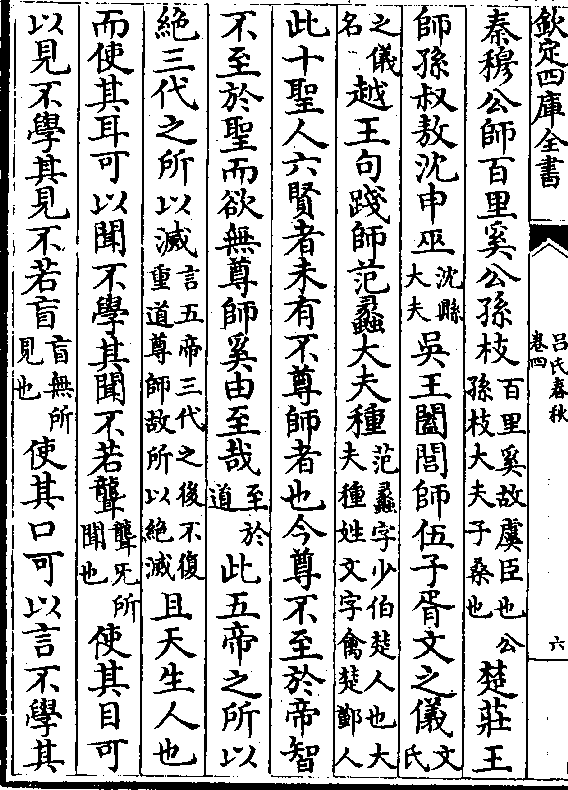 欽定四庫全書
呂氏春秋
卷四
六
秦穆公師百里奚公孫枝百里奚故虞臣也公孫枝大夫子桑也楚莊王
師孫叔敖沈申巫沈縣大夫吳王闔閭師伍子胥文之儀文氏
之儀名越王句踐師范蠡大夫種范蠡字少伯楚人也大夫種姓文字禽楚鄞人
此十聖人六賢者未有不尊師者也今尊不至於帝智
不至於聖而欲無尊師奚由至哉至於道此五帝之所以
絕三代之所以滅言五帝三代之後不復重道尊師故所以絕滅且天生人也
而使其耳可以聞不學其聞不若聾聾无所聞也使其目可
以見不學其見不若盲盲無所見也使其口可以言不學其